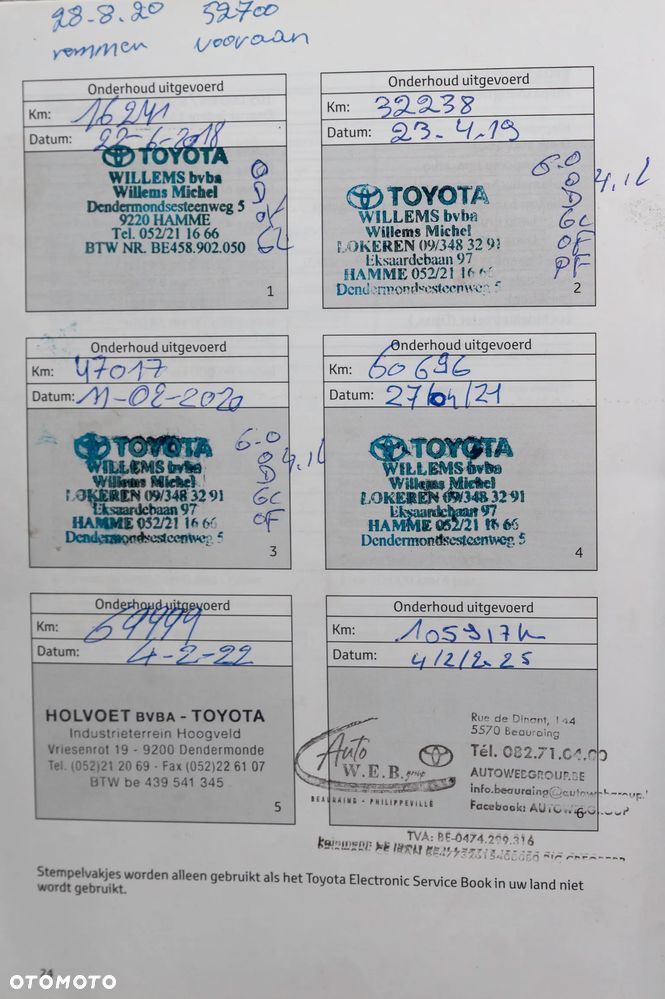 28.8.20 52700
remmen vooraan
Onderhoud uitgevoerd
Km: 16241
Datum: 22-6-2018
TOYOTA
WILLEMS bvba
Willems Michel
Dendermondsesteenweg 5
9220 HAMME
Tel. 052/21 16 66
BTW NR. BE458.902.050
O
D
OF
GL
1
Onderhoud uitgevoerd
Km: 32238
Datum: 23.4.19
TOYOTA
WILLEMS bvba
Willems Michel
LOKEREN 09/348 32 91
Eksaardebaan 97
HAMME 052/21 16 66
Dendermondsesteenweg 5
G.O
O 4.1L
D
GL
OF
PF
2
Onderhoud uitgevoerd
Km: 47017
Datum: 11-02-2020
TOYOTA
WILLEMS bvba
Willems Michel
LOKEREN 09/348 32 91
Eksaardebaan 97
HAMME 052/21 16 66
Dendermondsesteenweg 5
G.O
O 4.1L
D
GL
OF
3
Onderhoud uitgevoerd
Km: 60696
Datum: 27/04/21
TOYOTA
WILLEMS bvba
Willems Michel
LOKEREN 09/348 32 91
Eksaardebaan 97
HAMME 052/21 16 66
Dendermondsesteenweg 5
4
Onderhoud uitgevoerd
Km: 69999
Datum: 4-2-22
HOLVOET BVBA - TOYOTA
Industrieterrein Hoogveld
Vriesenrot 19 - 9200 Dendermonde
Tel. (052)21 20 69 - Fax (052)22 61 07
BTW be 439 541 345
5
Onderhoud uitgevoerd
Km:
Datum: 4/2/2025
Auto
W.E.B. group
BEAURAING - PHILIPPEVILLE
Rue de Dinant, 144
5570 Beauraing
Tél. 082.71.04.00
AUTOWEBGROUP.BE
info.beauraing@autowebgroup.
Facebook: AUTOWEBGROUP
6
TVA: BE-0474.299.316
Stempelvakjes worden alleen gebruikt als het Toyota Electronic Service Book in uw land niet
wordt gebruikt.
24
OTOMOTO